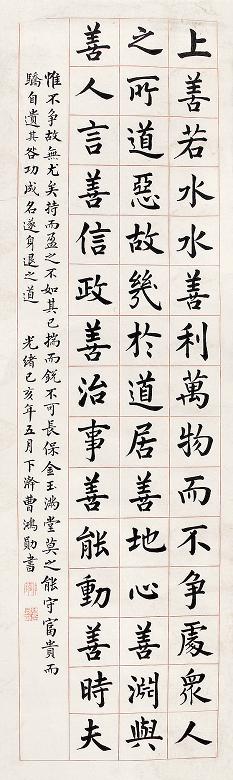 上善若水水善利萬物而不争處衆人
之所道惡故幾於道居善地心善淵與
善人言善信政善治事善能動善時夫
惟不争故無尤矣持而盈之不如其已揣而銳不可長保金玉滿堂莫之能守富貴而
驕自遺其咎功成名遂身退之道　光緒己亥年五月下澣曹鴻勛書